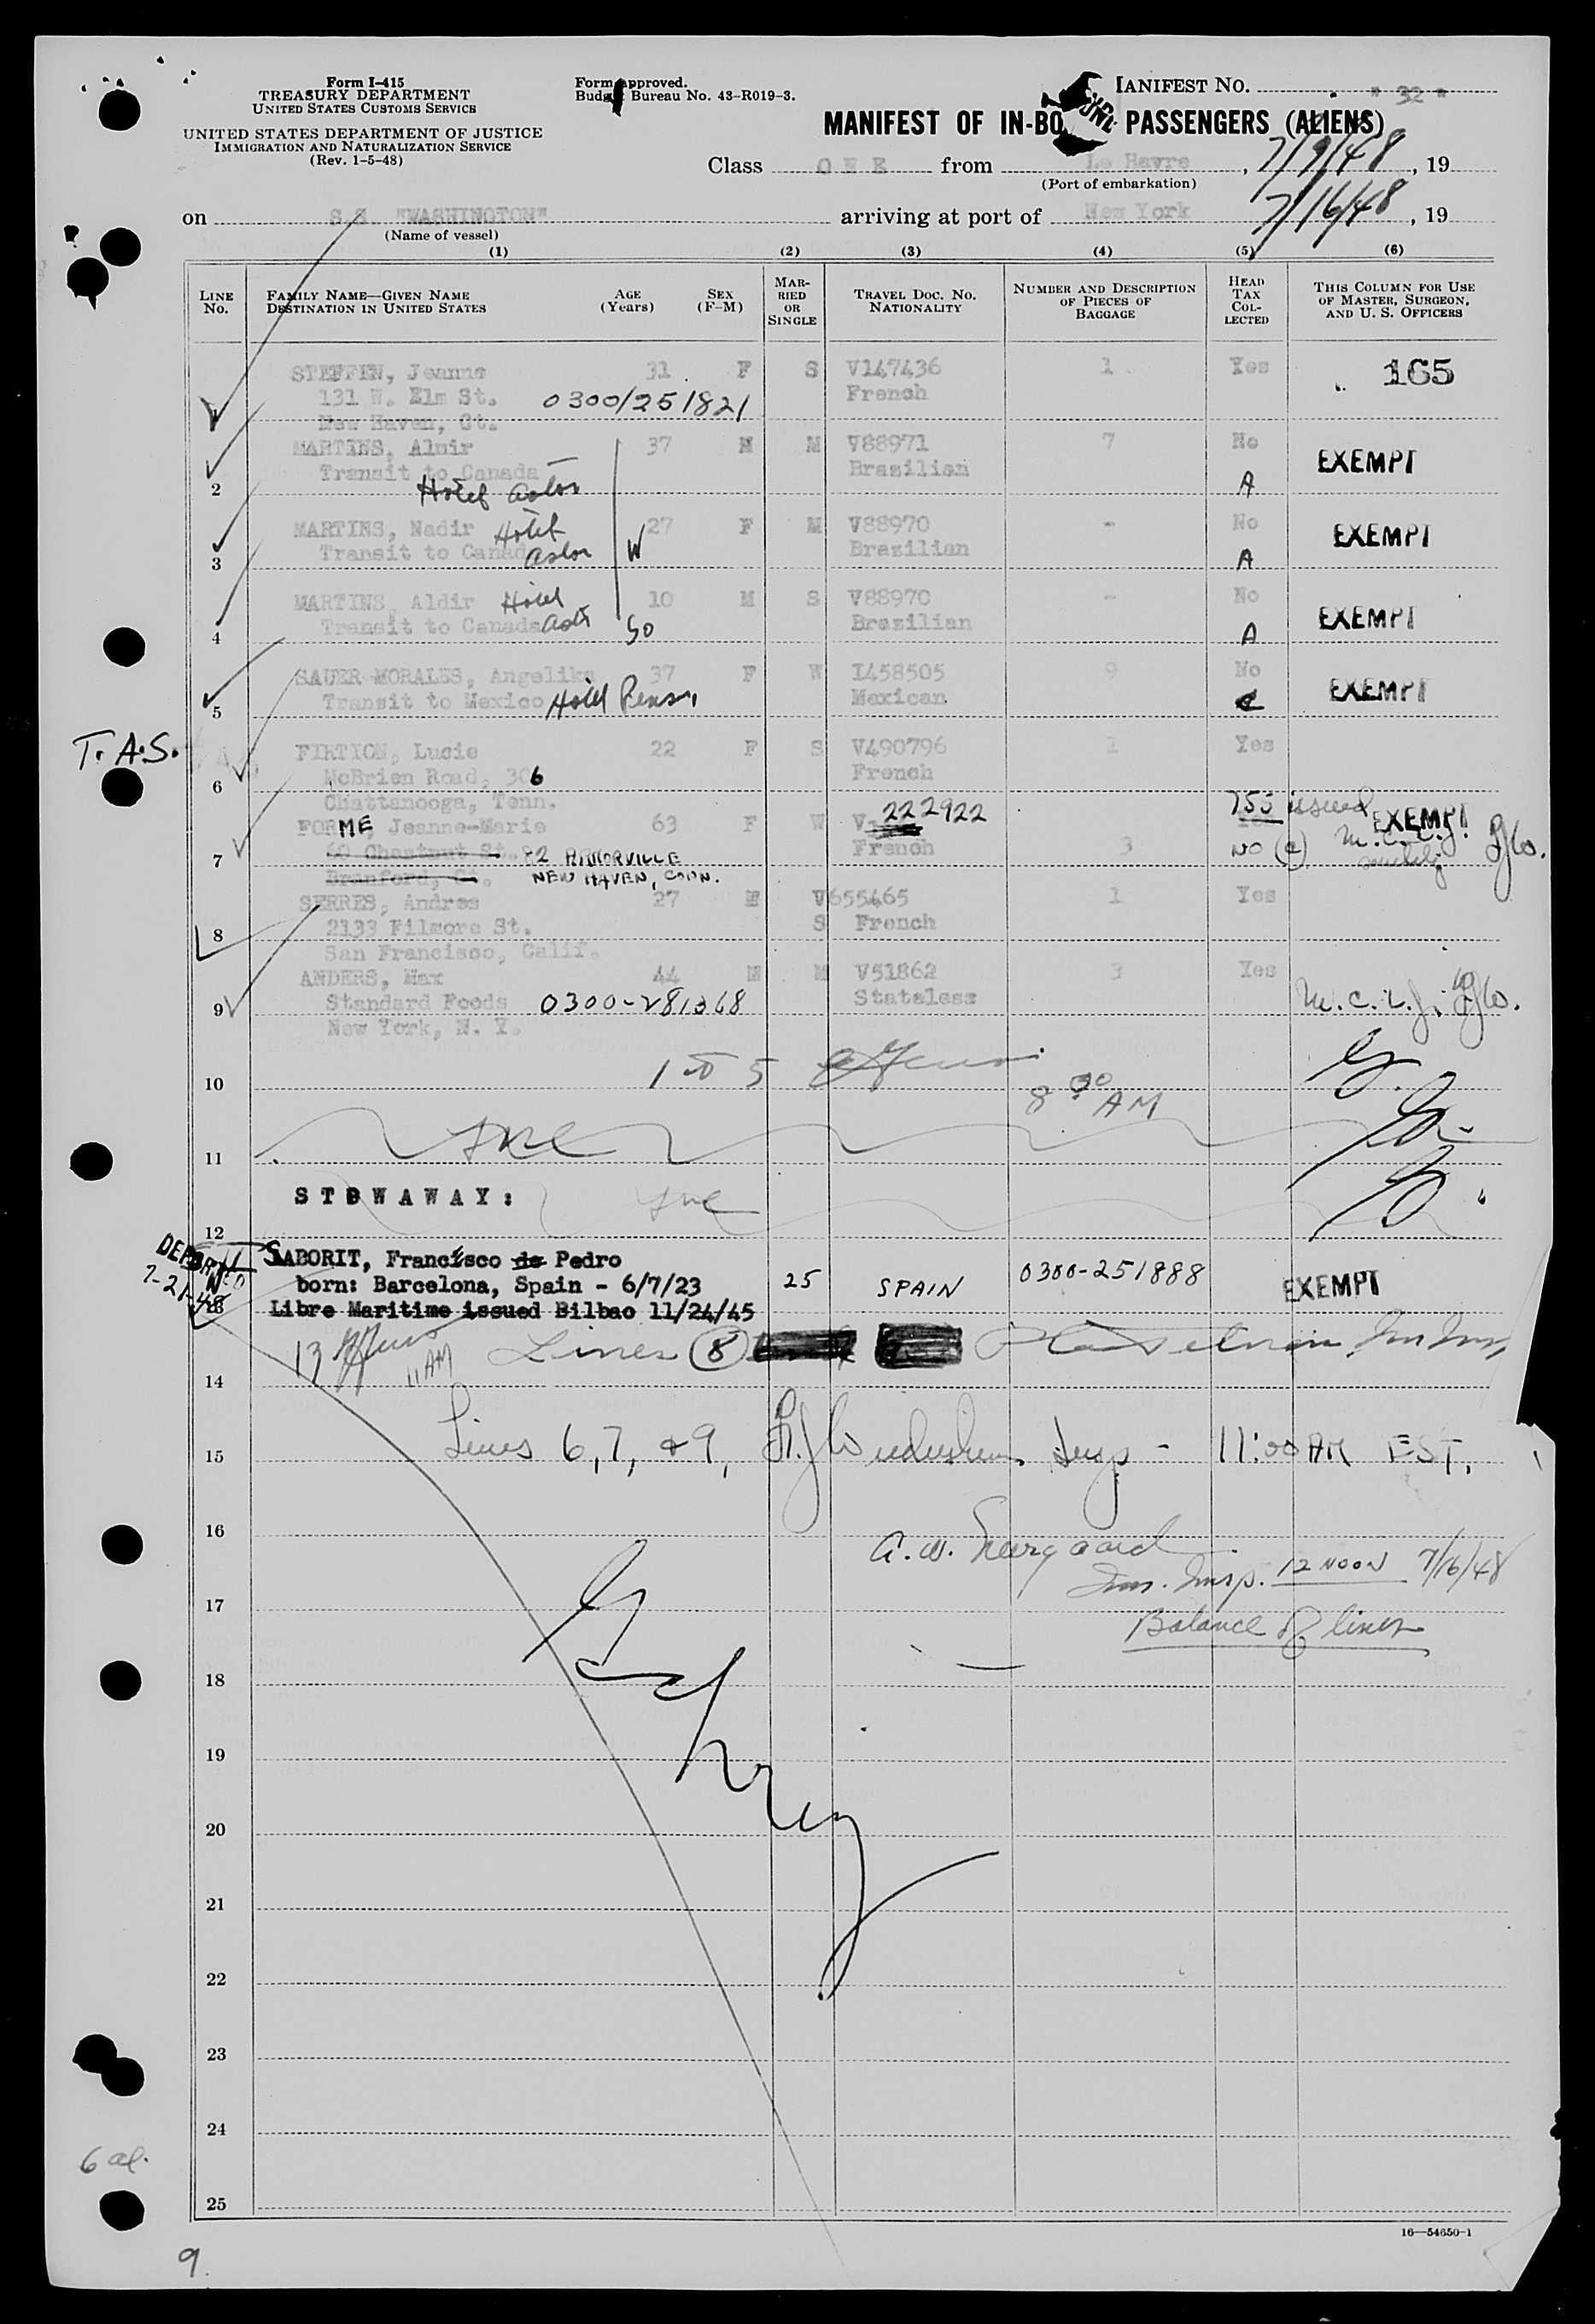 Form I-415
TREASURY DEPARTMENT
UNITED STATES CUSTOMS SERVICE
UNITED STATES DEPARTMENT OF JUSTICE
IMMIGRATION AND NATURALIZATION SERVICE
(Rev. 1-5-48)
Form approved.
Budget Bureau No. 43-R019-3.
MANIFEST NO. " 32 "
MANIFEST OF IN-BOUND PASSENGERS (ALIENS)
Class ONE from Le Havre, 7/9/48, 19
(Port of embarkation)
on S.S. "WASHINGTON" arriving at port of New York 7/16/48, 19
(Name of vessel)
(1) (2) (3) (4) (5) (6)
LINE No. FAMILY NAME—GIVEN NAME DESTINATION IN UNITED STATES AGE (Years) SEX (F-M) MARRIED OR SINGLE TRAVEL DOC. No. NATIONALITY NUMBER AND DESCRIPTION OF PIECES OF BAGGAGE HEAD TAX COLLECTED THIS COLUMN FOR USE OF MASTER, SURGEON, AND U. S. OFFICERS
STEFFEN, Jeanne 31 F S V147436 1 Yes 165
131 W. Elm St. 0300/251821 French
1 New Haven, Ct.
MARTINS, Almir 37 M M V88971 7 No EXEMPT
Transit to Canada Brasilian
2 Hotel Astor A
MARTINS, Nadir Hotel 27 F M V88970 - No EXEMPT
Transit to Canada Astor W Brasilian
3 A
MARTINS, Aldir Hotel 10 M S V88970 - No EXEMPT
Transit to Canada So Brasilian
4 A
SAUER-MORALES, Angelika 37 F W I458505 9 No EXEMPT
Transit to Mexico Hotel Mexican
5
T.A.S.
FIRTION, Lucie 22 F S V490796 1 Yes
McBrien Road, 306 French
6
Chattanooga, Tenn.
FORME, Jeanne-Marie 63 F W V 222922 755 issued EXEMPT
7 60 Chestnut St. 82 French 3 NO
Branford, Ct. NEW HAVEN, CONN.
SERRES, Andres 27 M V655465 1 Yes
8 2133 Filmore St. S French
San Francisco, Calif.
ANDERS, Max 44 M M V51862 3 Yes
9 Standard Foods 0300-281368 Stateless
New York, N. Y.
10 1 to 5 8 00 AM
11
STOWAWAY:
12
DEPORTED 7-21-48
SABORIT, Francisco de Pedro
born: Barcelona, Spain - 6/7/23 25 SPAIN 0300-251888 EXEMPT
13 Libre Maritime issued Bilbao 11/24/45
13 11 AM Lines 8
14
15 Lines 6, 7, & 9, Insp - 11:00 AM EST.
16
Imm. Insp. 12 NOON 7/16/48
17 Balance of lines
18
19
20
21
22
23
24
6 al.
25
16—54650-1
9